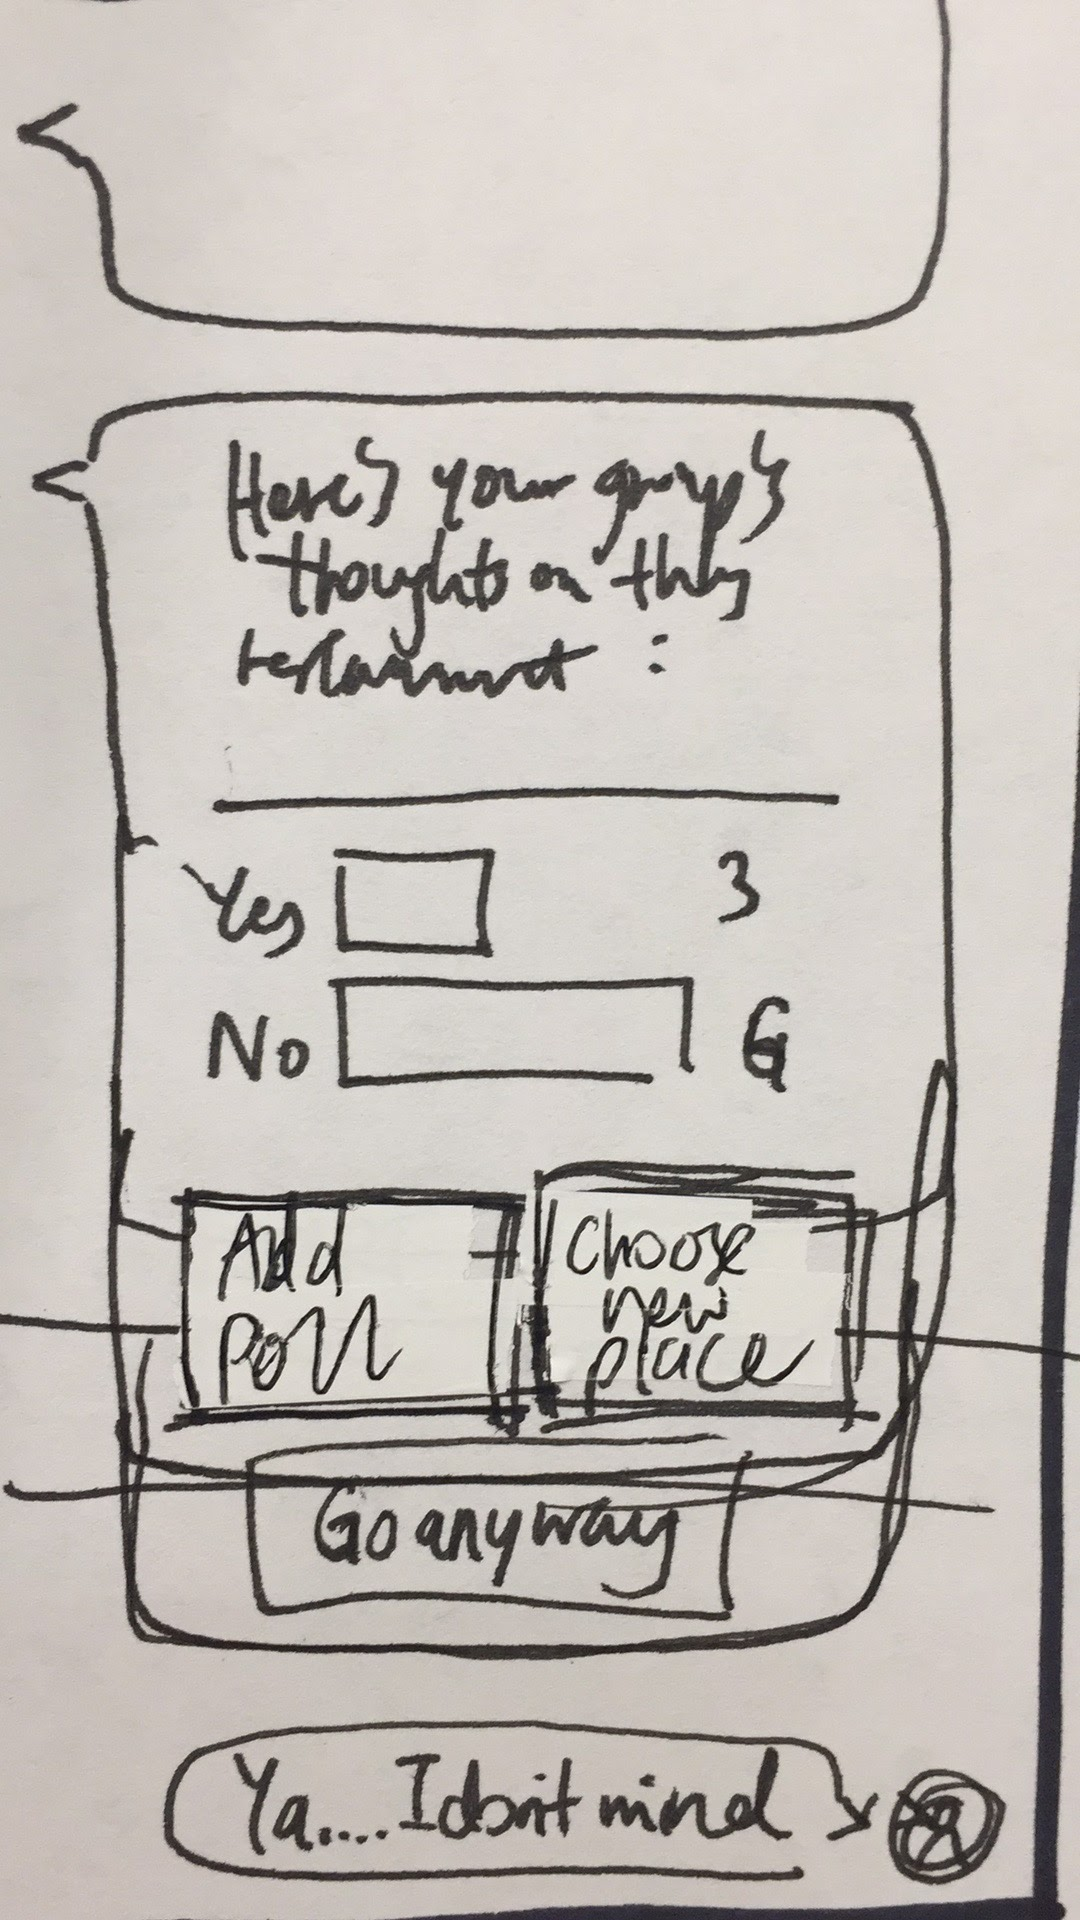 Here's your group's
thoughts on this
restaurant :
Yes 3
No 6
Add
Poll
Choose
new
place
Go anyway
Ya.... I don't mind